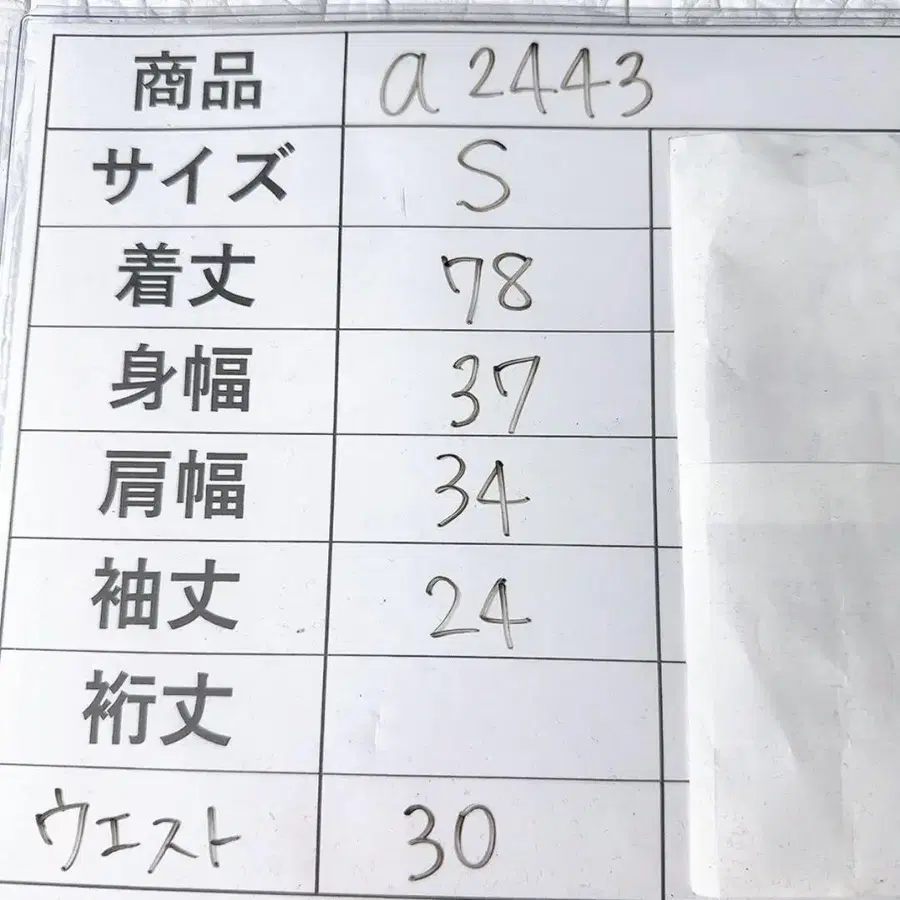 商品 a2443
サイズ S
着丈 78
身幅 37
肩幅 34
袖丈 24
裄丈
ウエスト 30